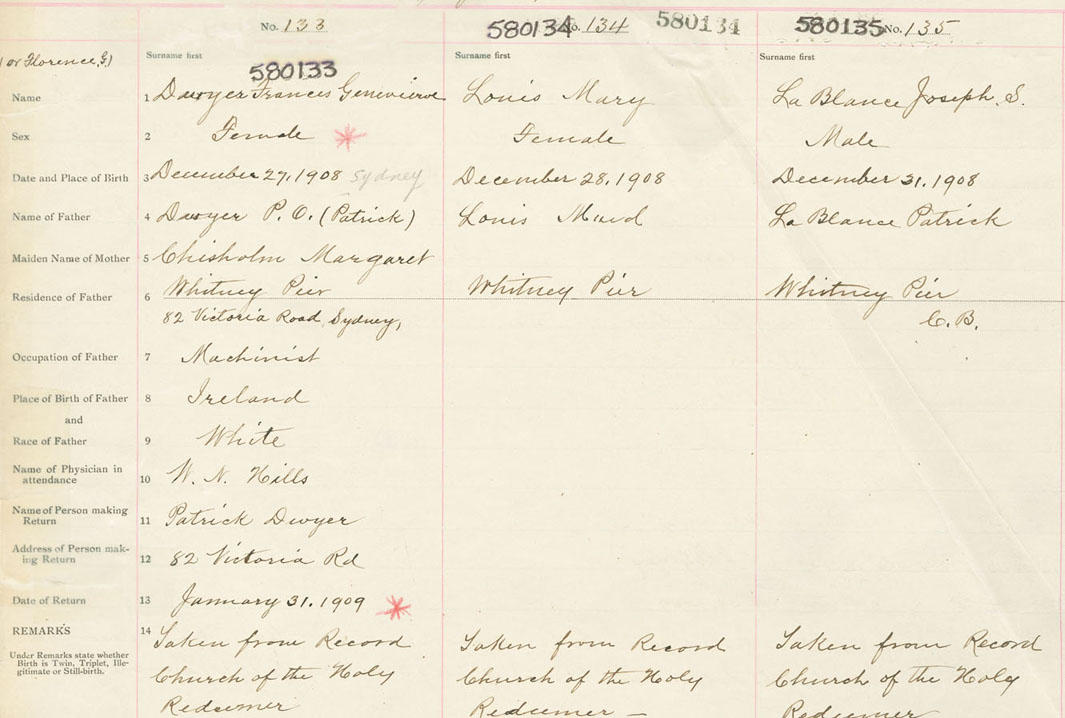 No. 133
580134 No. 134 580134
580135 No. 135
(or Florence, G)
Surname first
Surname first
Surname first
580133
Name 1 Dwyer Frances Genevieve Louis Mary La Blance Joseph. S.
Sex 2 Female Female Male
Date and Place of Birth 3 December 27, 1908 Sydney December 28, 1908 December 31, 1908
Name of Father 4 Dwyer P. O. (Patrick) Louis Maud La Blance Patrick
Maiden Name of Mother 5 Chisholm Margaret
Residence of Father 6 Whitney Pier Whitney Pier Whitney Pier
82 Victoria Road, Sydney, C. B.
Occupation of Father 7 Machinist
Place of Birth of Father 8 Ireland
and
Race of Father 9 White
Name of Physician in
attendance 10 W. N. Hills
Name of Person making
Return 11 Patrick Dwyer
Address of Person mak-
ing Return 12 82 Victoria Rd
Date of Return 13 January 31. 1909
REMARKS 14 Taken from Record Taken from Record Taken from Record
Under Remarks state whether
Birth is Twin, Triplet, Ille-
gitimate or Still-birth.
Church of the Holy Church of the Holy Church of the Holy
Redeemer Redeemer — Redeemer